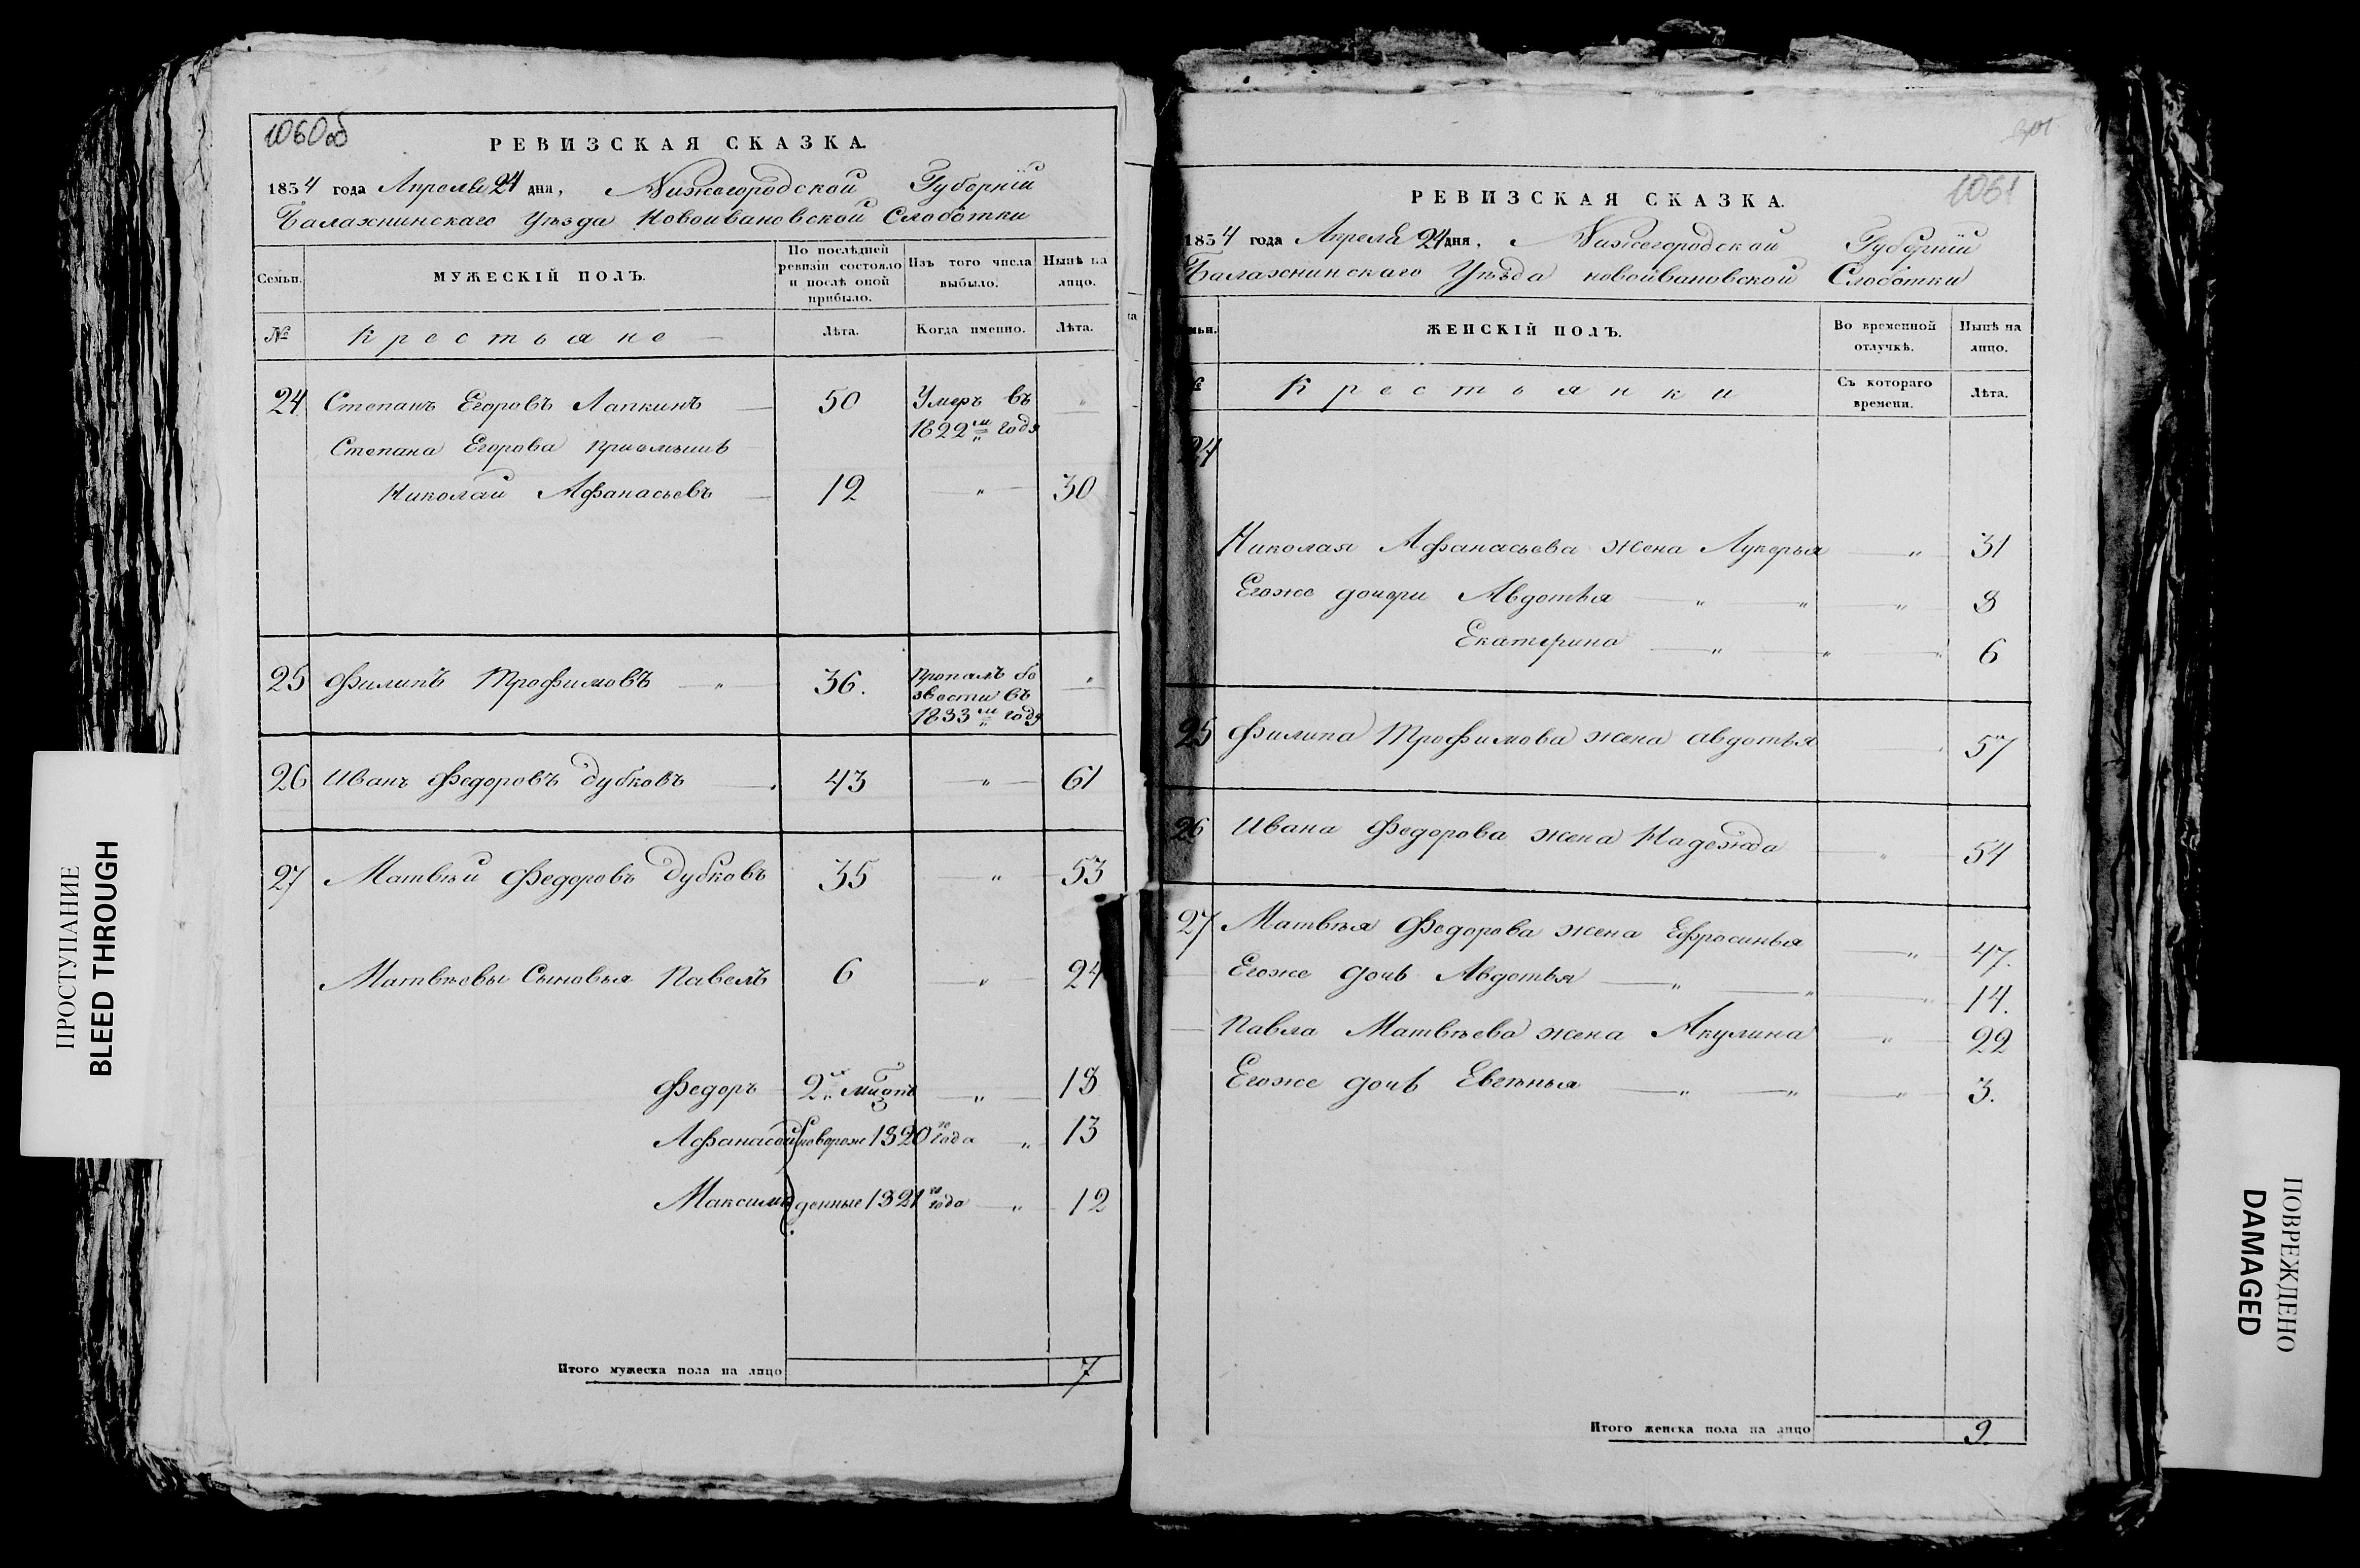 1060об
РЕВИЗСКАЯ СКАЗКА.
1834 года Апреля 24 дня, Нижегородской Губернiи
Балахнинскаго Уѣзда Новоивановской Слоботки
Семьи.
МУЖЕСКIЙ ПОЛЪ.
По послѣдней ревизiи состояло и послѣ оной прибыло.
Изъ того числа выбыло.
Нынѣ на лицо.
№
Крестьяне
Лѣта.
Когда именно.
Лѣта.
24 Степанъ Егоровъ Лапкинъ — 50 Умеръ въ "
1822м годе
Степана Егорова приемышъ
Николай Афанасьевъ — 12 — " — 30
25 Филипъ Трофимовъ — " 36. Пропалъ бе "
звести въ
1833м годе
26 Иванъ Федоровъ Дубковъ — 43 — " — 61
27 Матвѣй Федоровъ Дубковъ 35 — " — 53
Матвѣевы Сыновья Павелъ 6 — " — 24
Федоръ 2хъ — " — 18
Афанасей новорож 1820го года " 13
Максимъ денные 1821го года — " — 12
Итого мужеска пола на лицо 7
1061
РЕВИЗСКАЯ СКАЗКА.
1834 года Апреля 24 дня, Нижегородской Губернiи
Балахнинскаго Уѣзда новоивановской Слоботки
мьи.
ЖЕНСКIЙ ПОЛЪ.
Во временной отлучкѣ.
Нынѣ на лицо.
№
Крестьянки
Съ котораго времени.
Лѣта.
24
Николая Афанасьева жена Лукерья — " — 31
Егоже дочери Авдотья — " — " — " — 8
Екатерина — " — " — " 6
25 Филипа Трофимова жена авдотья 57
26 Ивана Федорова жена Надежда — " — 54
27 Матвѣя Федорова жена Ефросинья — " — 47.
Егоже дочь Авдотья — " — " — " 14.
Павла Матвѣева жена Акулина — " — 22
Егоже дочь Евгенья — " — " — " — 3.
Итого женска пола на лицо 9
ПРОСТУПАНИЕ
BLEED THROUGH
ПОВРЕЖДЕНО
DAMAGED